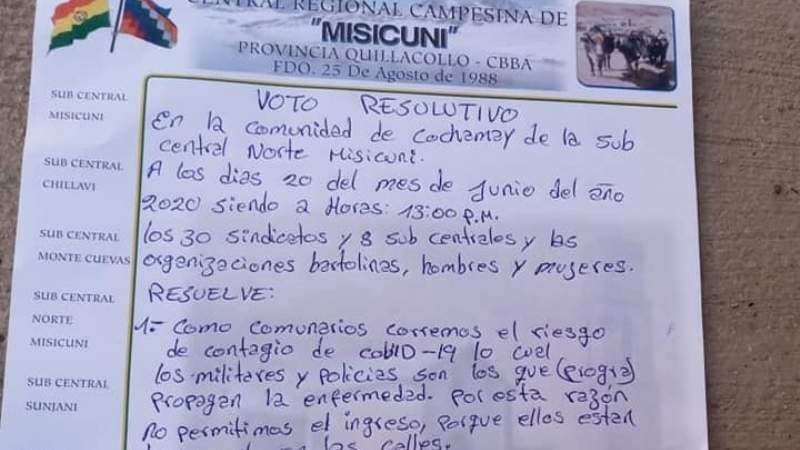 CENTRAL REGIONAL CAMPESINA DE
"MISICUNI"
PROVINCIA QUILLACOLLO - CBBA
FDO. 25 De Agosto de 1988
SUB CENTRAL
MISICUNI
SUB CENTRAL
CHILLAVI
SUB CENTRAL
MONTE CUEVAS
SUB CENTRAL
NORTE
MISICUNI
SUB CENTRAL
SUNJANI
VOTO RESOLUTIVO
En la comunidad de Cochamay de la sub
central Norte Misicuni.
A los dias 20 del mes de Junio del año
2020 siendo a Horas: 13:00 P.M.
los 30 sindicatos y 8 sub centrales y las
organizaciones bartolinas, hombres y mujeres.
RESUELVE:
1.- Como comunarios corremos el riesgo
de contagio de cobID-19 lo cual
los militares y policias son los que (progra)
propagan la enfermedad. por esta razón
no permitimos el ingreso, porque ellos estan
las calles.